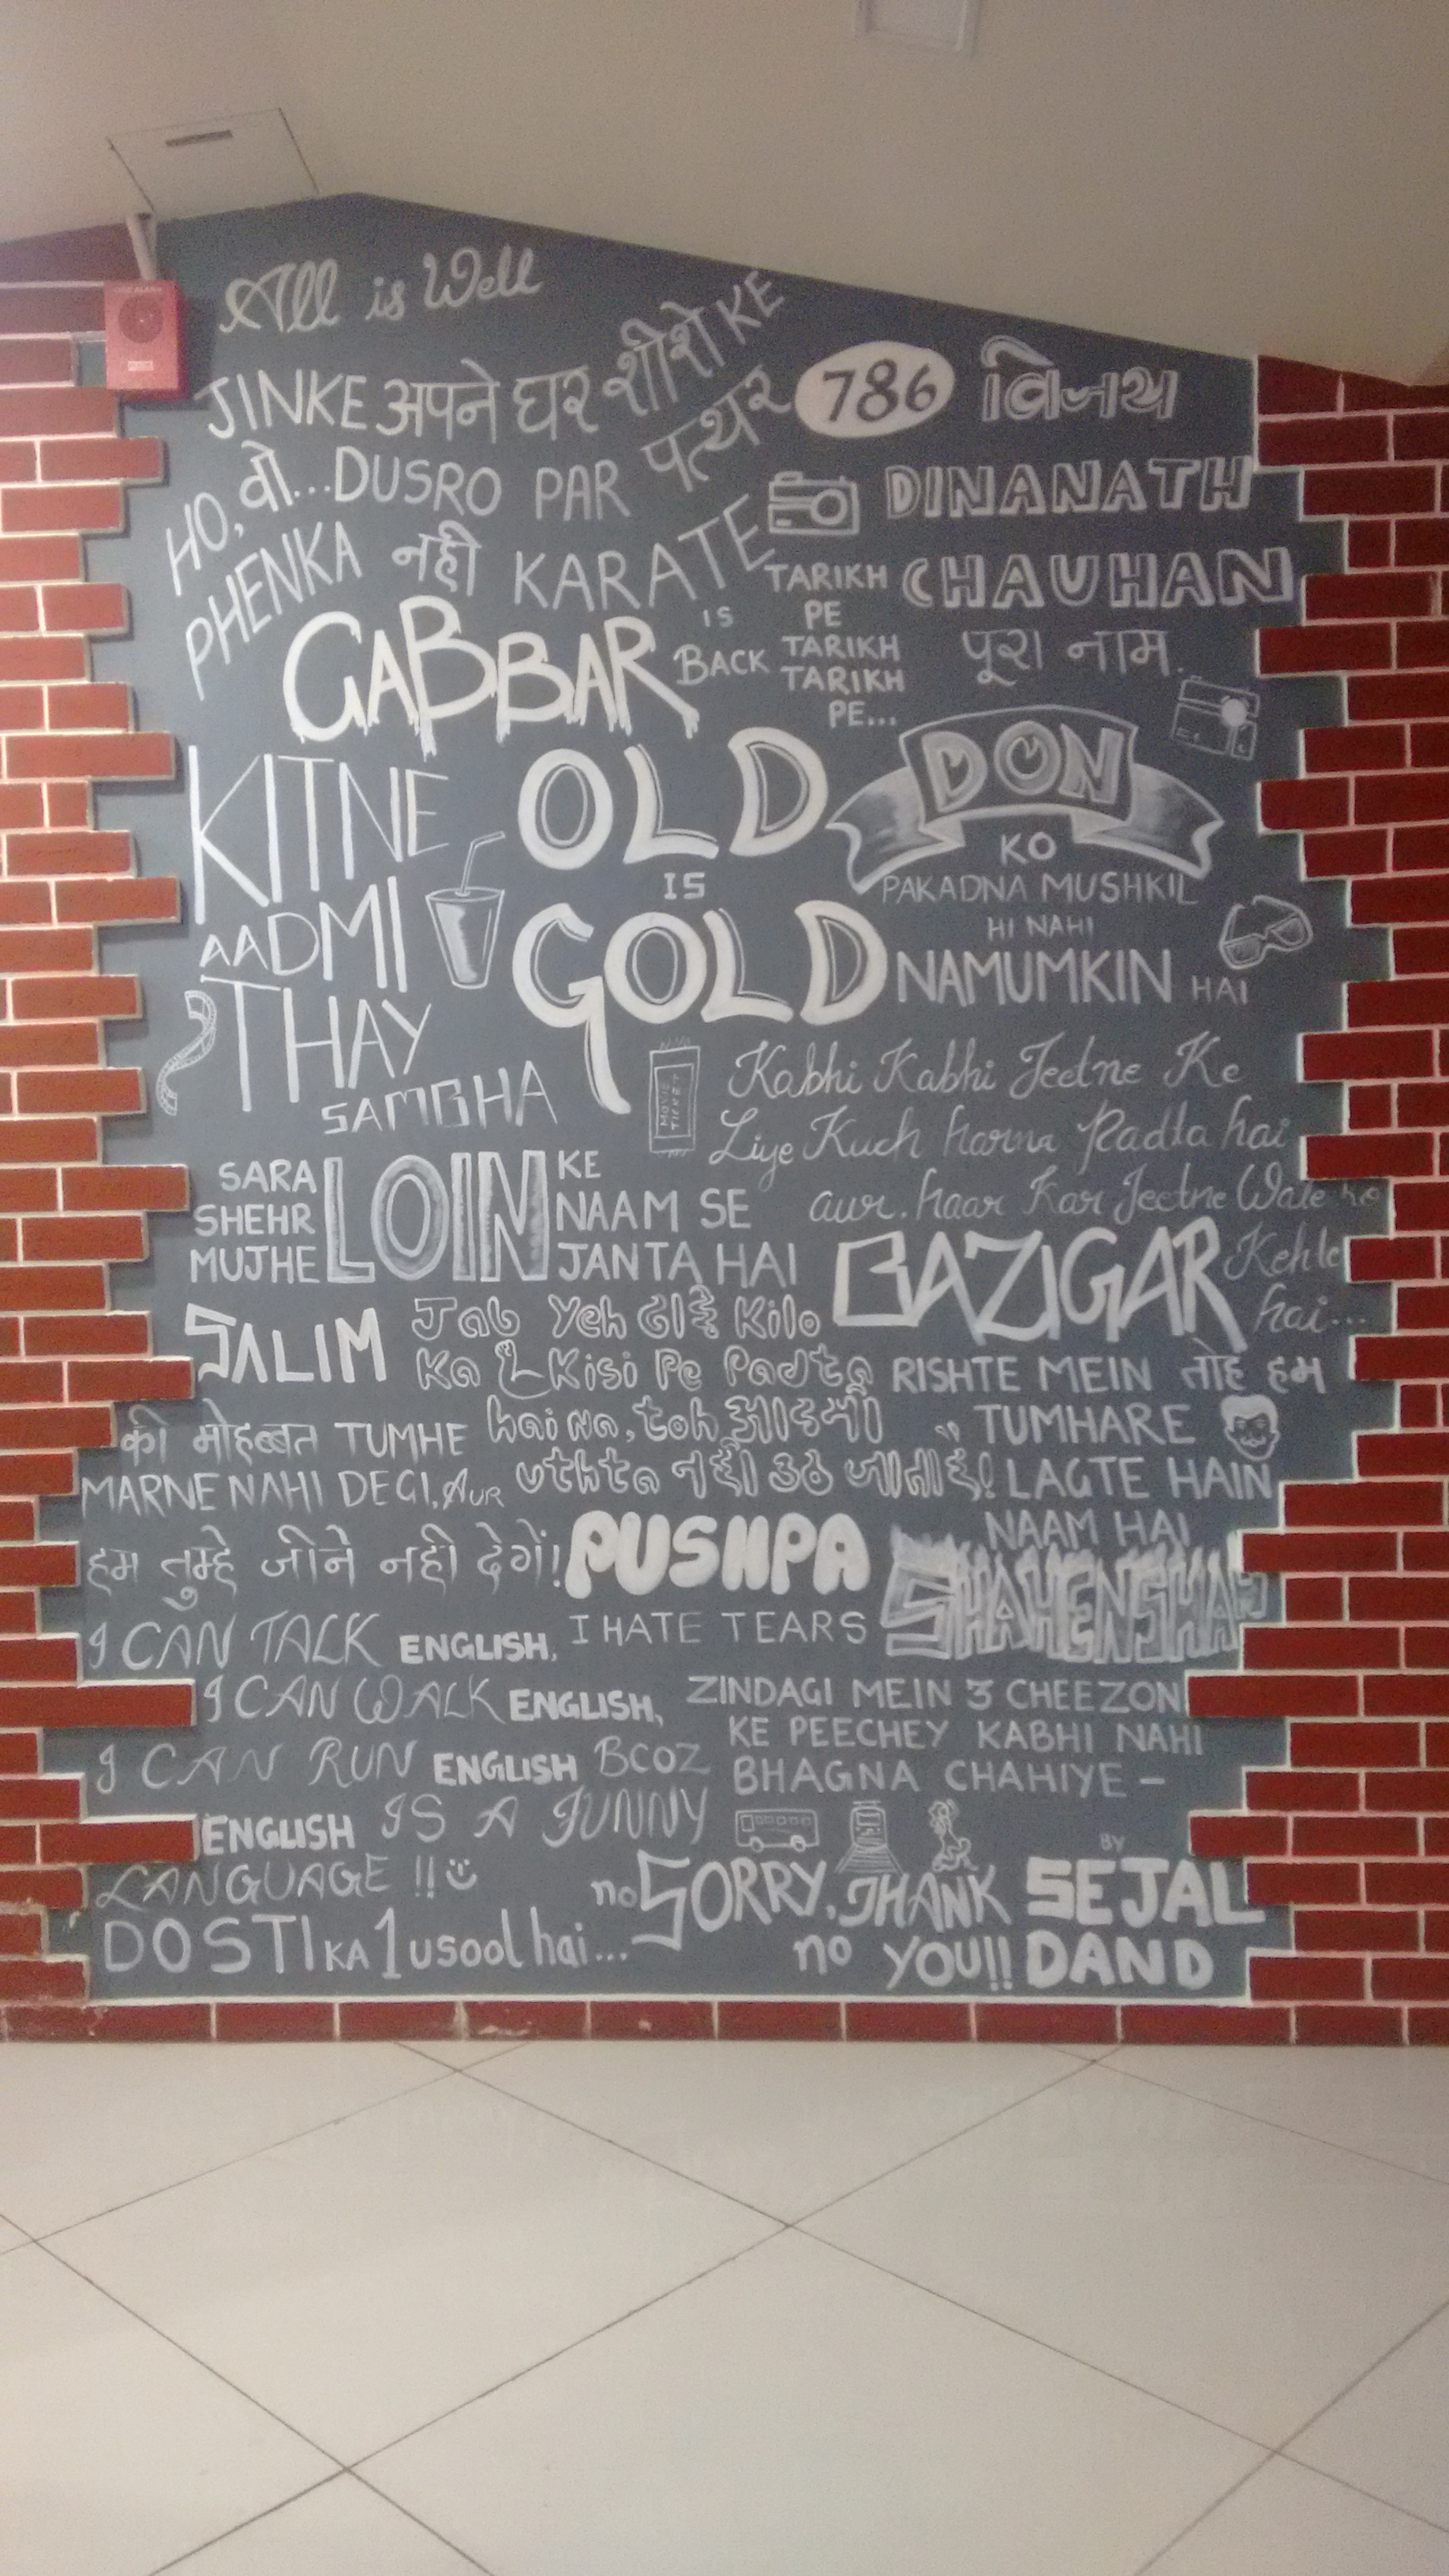 All is Well
JINKE अपने घर शीशे KE
HO, वो...DUSRO PAR पत्थर
PHENKA नही KARATE
786 विजय
DINANATH
CHAUHAN
पूरा नाम.
TARIKH
PE
TARIKH
TARIKH
PE...
GABBAR IS BACK
KITNE
AADMI
THAY
SAMBHA
OLD
IS
GOLD
DON
KO
PAKADNA MUSHKIL
HI NAHI
NAMUMKIN HAI
MOVIE
TICKET
Kabhi Kabhi Jeetne Ke
Liye Kuch harna Padta hai
aur. haar Kar Jeetne Wale ko
BAZIGAR Kehte
hai...
SARA
SHEHR
MUJHE
LOIN
KE
NAAM SE
JANTA HAI
SALIM
की मोहब्बत TUMHE
MARNE NAHI DEGI, AUR
हम तुम्हे जीने नही देगें!
Jab Yeh ढाई Kilo
Ka Kisi Pe Padta
hai na, toh आदमी
uthta नही उठ जाता है!
RISHTE MEIN तोह हम
TUMHARE
LAGTE HAIN
NAAM HAI
SHAHENSHAH
PUSHPA
I HATE TEARS
I CAN TALK ENGLISH,
I CAN WALK ENGLISH,
I CAN RUN ENGLISH BCOZ
ENGLISH IS A FUNNY
LANGUAGE !!
ZINDAGI MEIN 3 CHEEZON
KE PEECHEY KABHI NAHI
BHAGNA CHAHIYE –
DOSTI KA 1 usool hai...
no SORRY, no THANK
YOU!!
BY
SEJAL
DAND